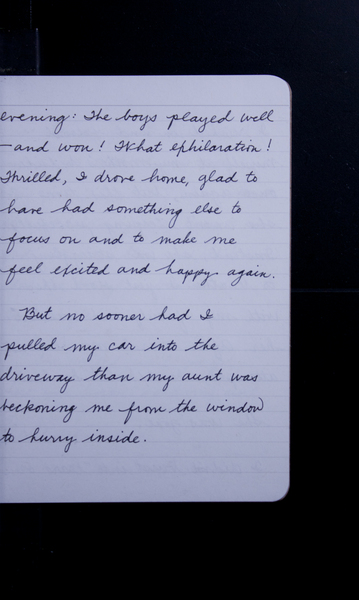 evening: The boys played well
—and won! What exhilaration!
Thrilled, I drove home, glad to
have had something else to
focus on and to make me
feel excited and happy again.
But no sooner had I
pulled my car into the
driveway than my aunt was
beckoning me from the window
to hurry inside.